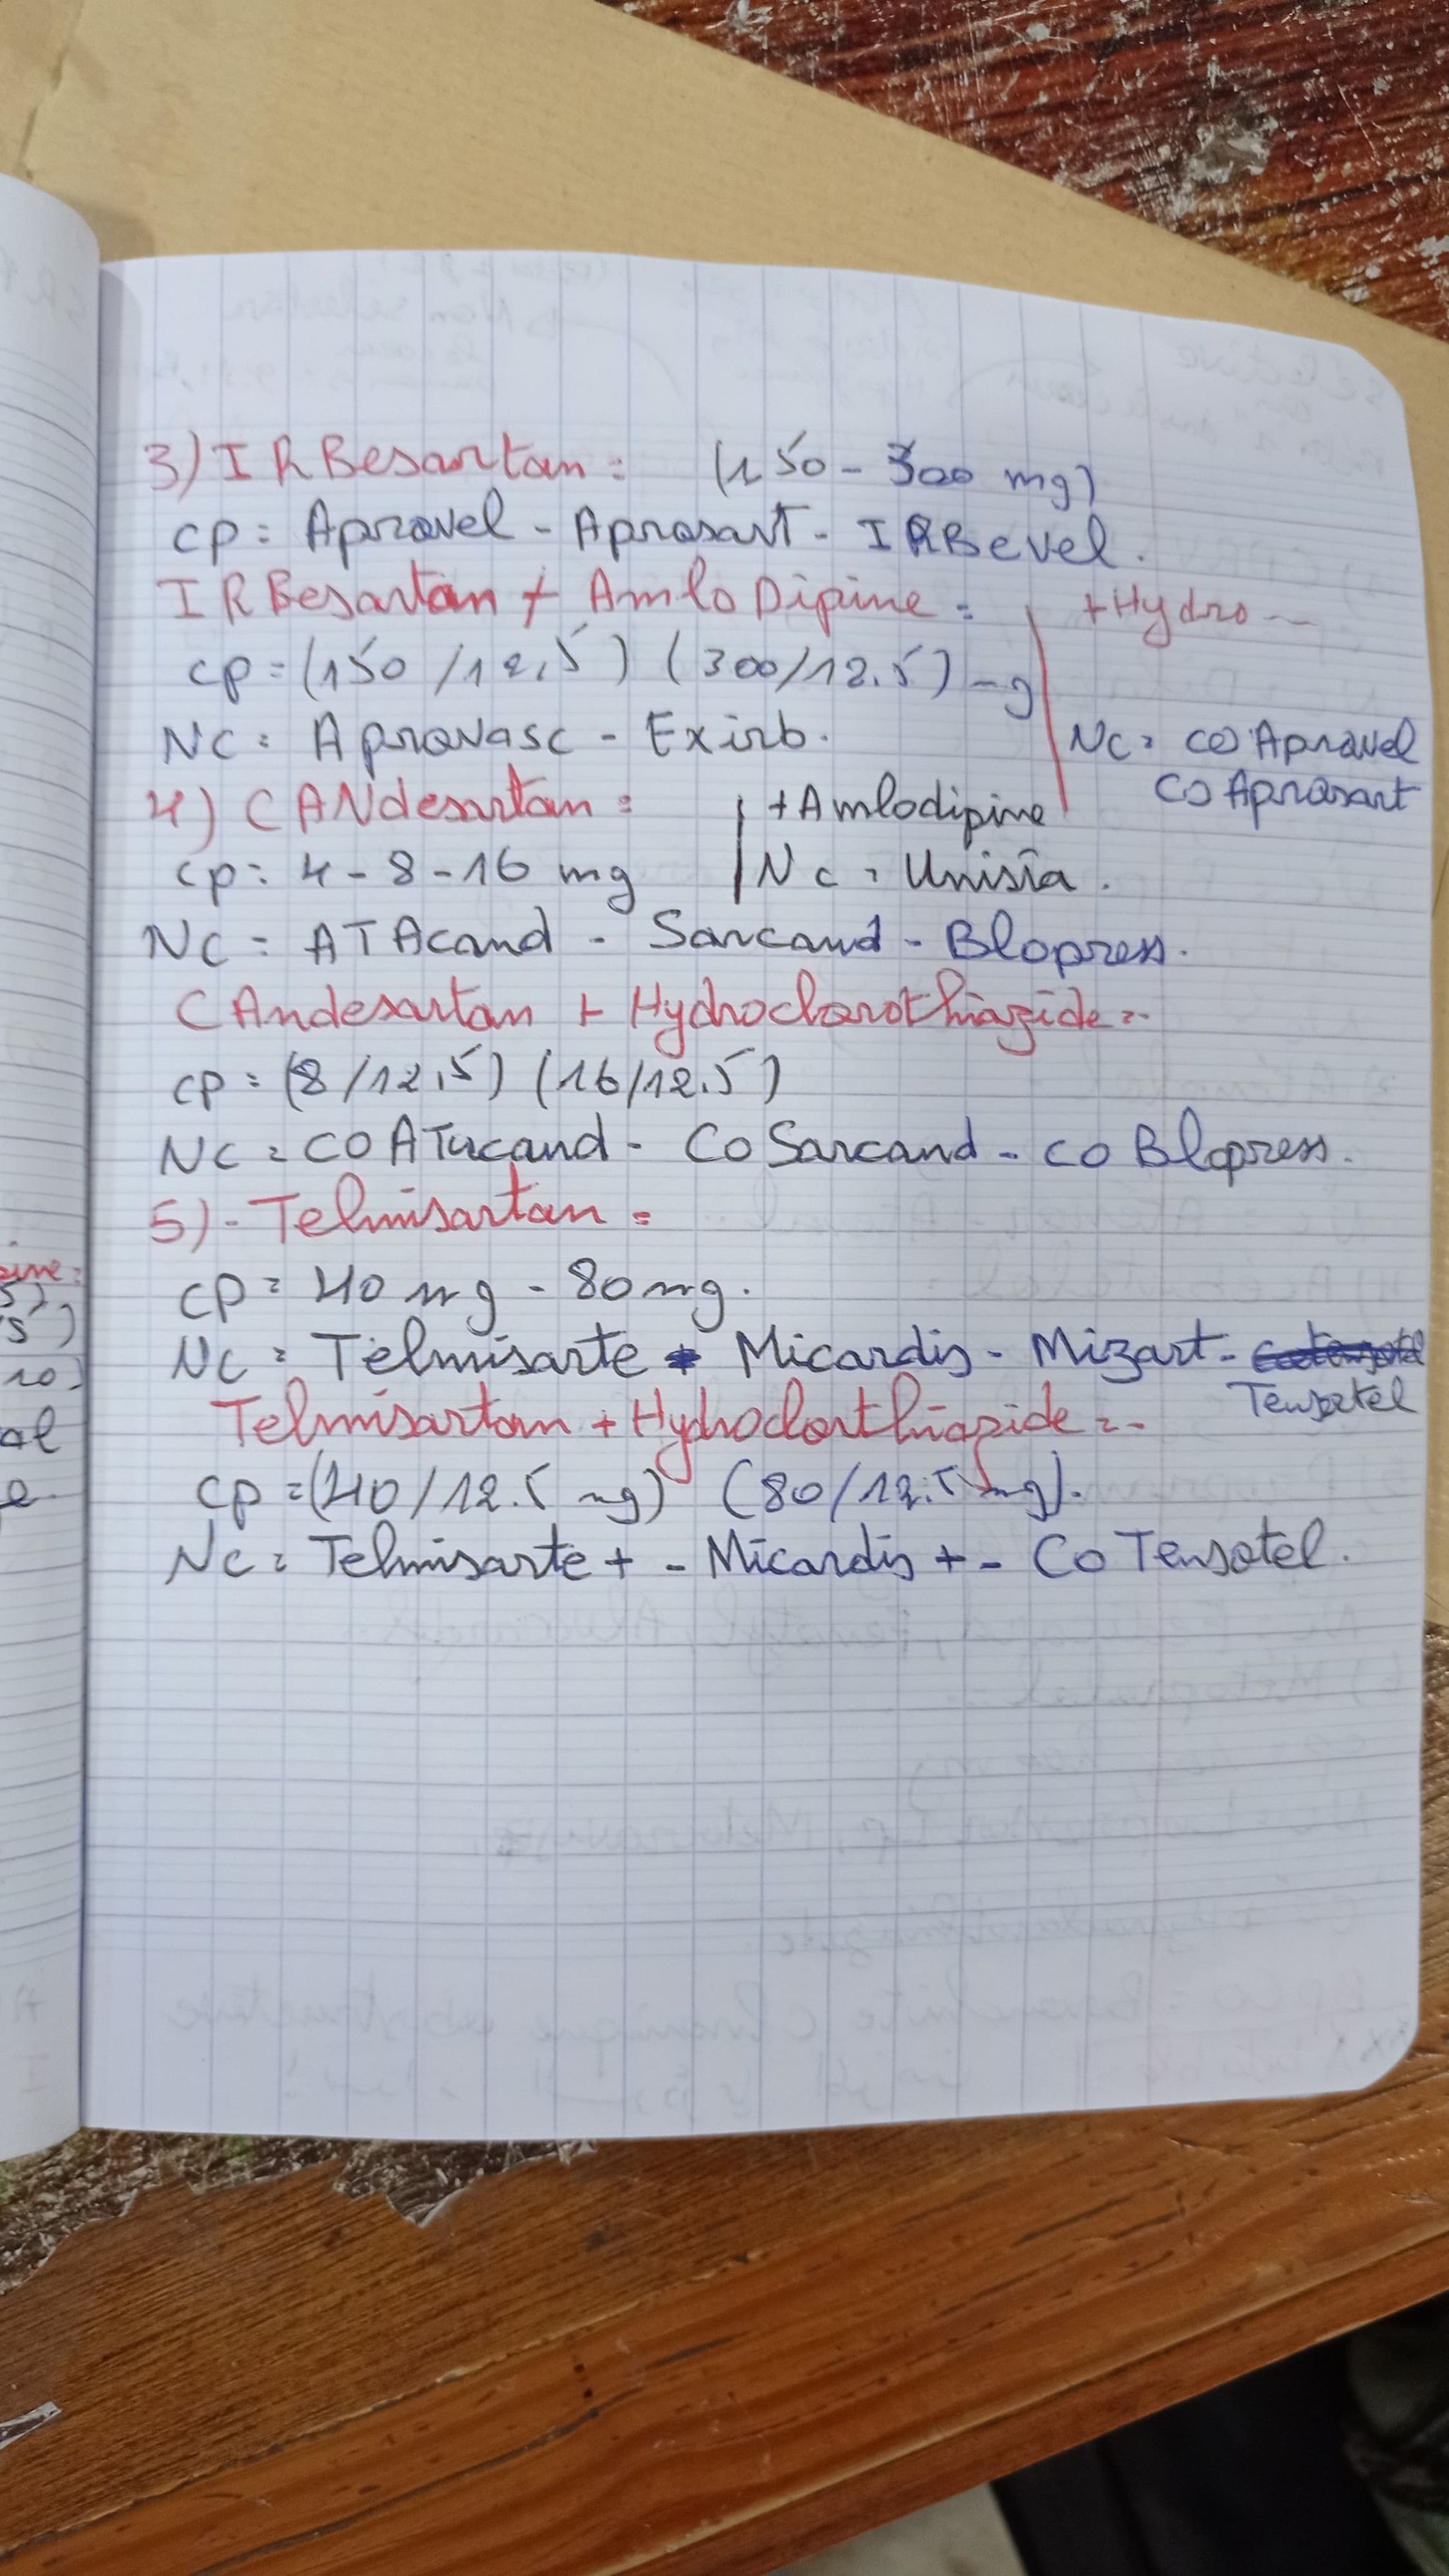 3) IRBesartan = (150 - 300 mg)
cp = Aprovel - Aprosart - IRBevel.
IRBesartan + AmloDipine =
cp = (150/12,5) (300/12.5) mg
Nc = Aprovasc - Exirb.
+ Hydro --
Nc = co Aprovel
co Aprosart
4) CANdesartan =
cp = 4 - 8 - 16 mg
+ Amlodipine
Nc = Unisia.
NC = ATAcand - Sarcand - Blopress.
CAndesartan + Hydroclorothiazide =
cp = (8/12,5) (16/12.5)
NC = CO ATacand - Co Sarcand - co Blopress.
5) - Telmisartan =
cp = 40 mg - 80 mg.
Nc = Telmisarte - Micardis - Mizart -
Tensotel
Telmisartan + Hydroclorthiazide =
cp = (40/12.5 mg) (80/12.5 mg).
Nc = Telmisarte + - Micardis + - Co Tensotel.
sine =
5)
's)
10)
al
e